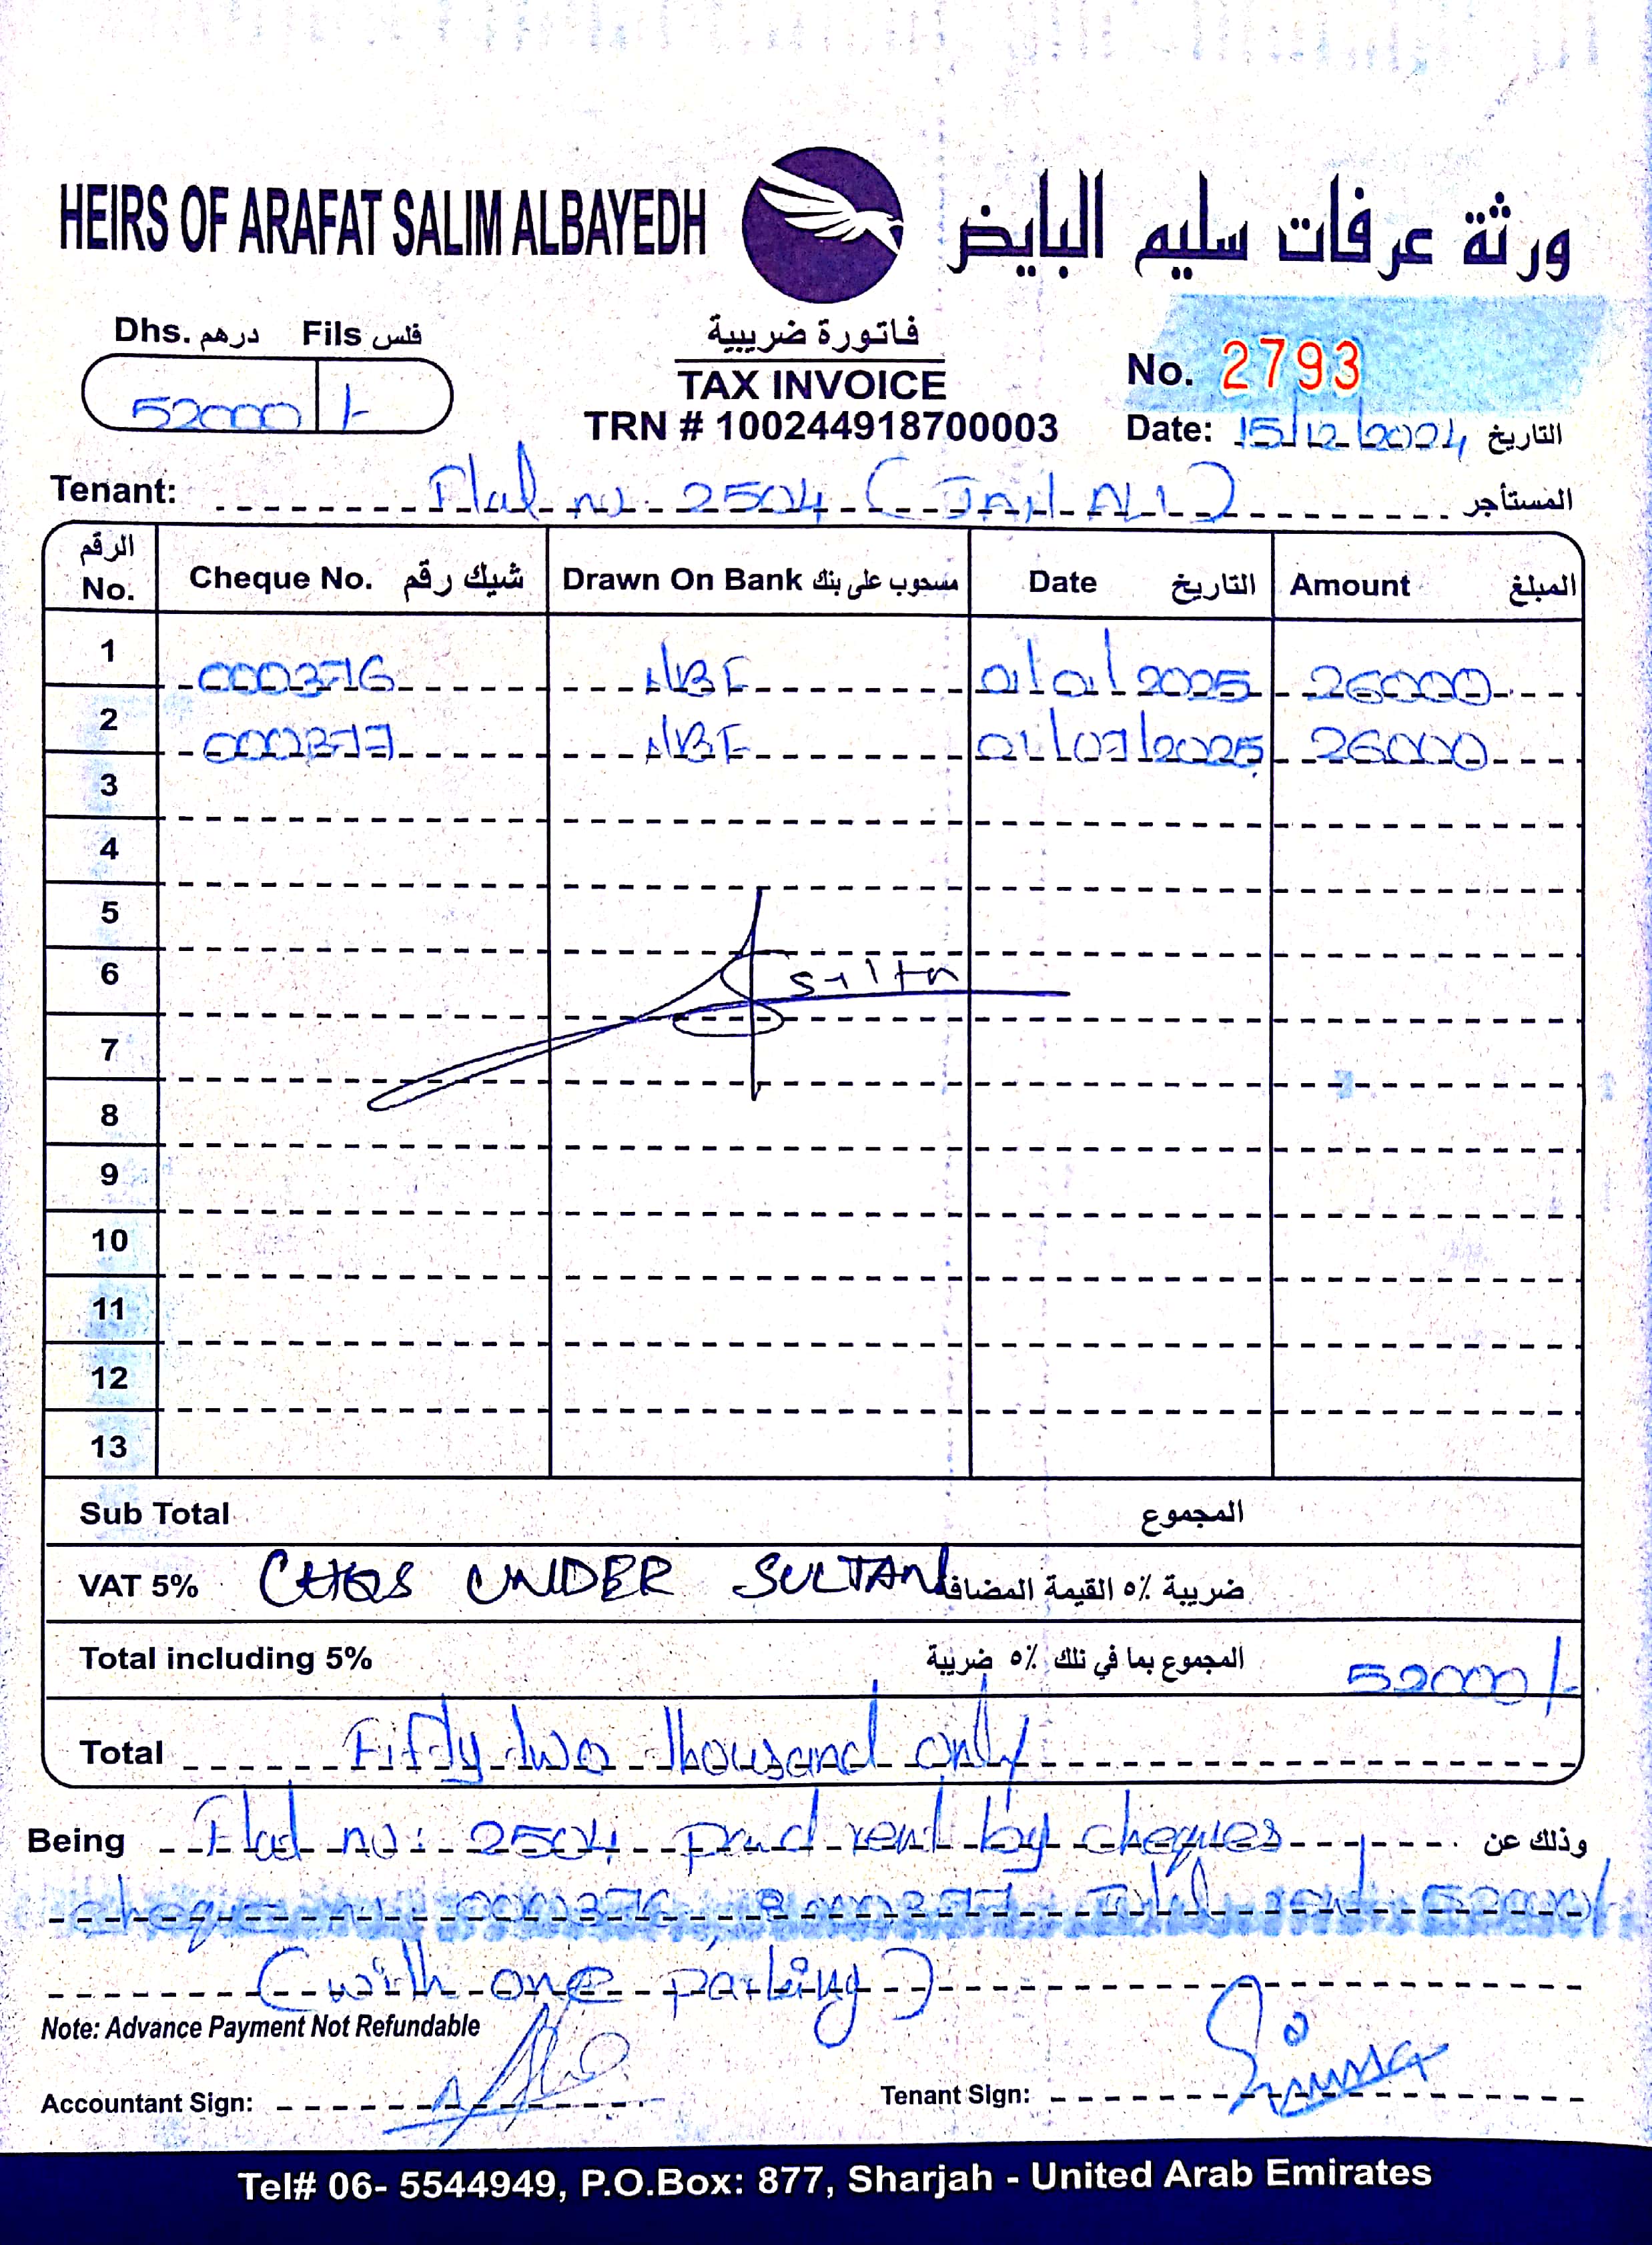 HEIRS OF ARAFAT SALIM ALBAYEDH ورثة عرفات سليم البايض
Dhs. درهم Fils فلس
52000 /-
فاتورة ضريبية
TAX INVOICE
TRN # 100244918700003
No. 2793
Date: 15/12/2024 التاريخ
Tenant: Flat no. 2504 ( ALI) المستأجر
الرقم No. Cheque No. شيك رقم Drawn On Bank مسحوب على بنك Date التاريخ Amount المبلغ
1 000376 NBF 01/01/2025 26000
2 000377 NBF 01/07/2025 26000
3
4
5
6
7
8
9
10
11
12
13
Sub Total المجموع
VAT 5% CHQS UNDER SULTAN ضريبة ٥٪ القيمة المضافة
Total including 5% المجموع بما في تلك ٥٪ ضريبة 52000/-
Total Fifty two thousand only
Being Flat no: 2504 paid rent by cheques وذلك عن
cheque no 000376, & 000377 Total rent 52000/
(with one parking)
Note: Advance Payment Not Refundable
Accountant Sign: Tenant Sign:
Tel# 06- 5544949, P.O.Box: 877, Sharjah - United Arab Emirates